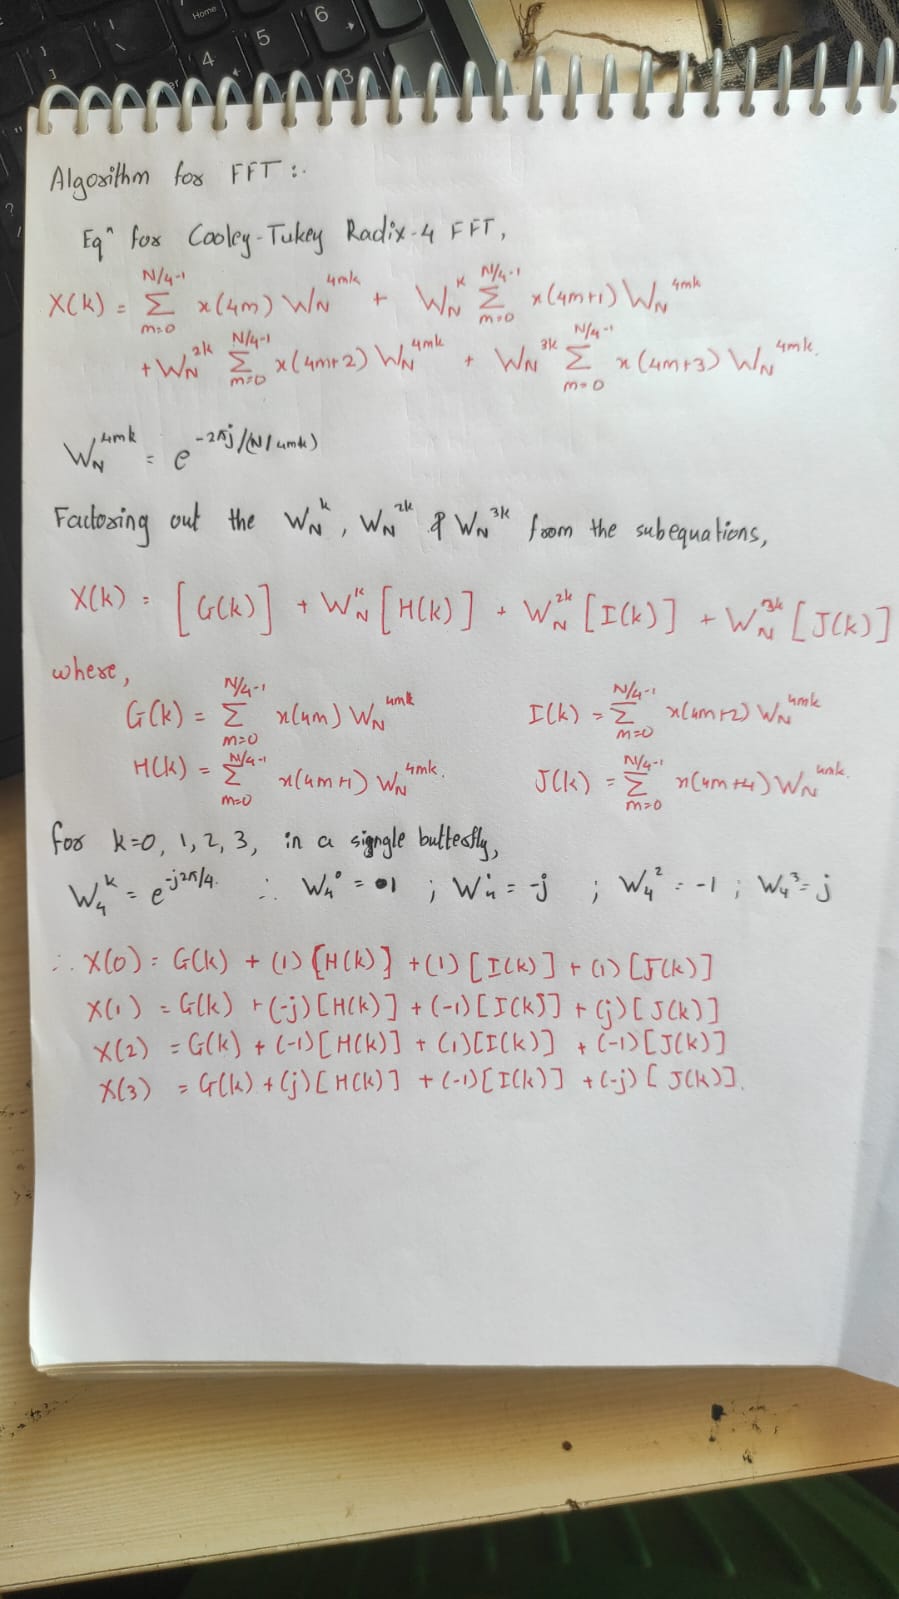 Home
4
5
6
3
Algorithm for FFT :-
Eqⁿ for Cooley-Tukey Radix-4 FFT,
X(k) = Σ_{m=0}^{N/4-1} x(4m) W_N^{4mk} + W_N^{k} Σ_{m=0}^{N/4-1} x(4m+1) W_N^{4mk}
+ W_N^{2k} Σ_{m=0}^{N/4-1} x(4m+2) W_N^{4mk} + W_N^{3k} Σ_{m=0}^{N/4-1} x(4m+3) W_N^{4mk}.
W_N^{4mk} = e^{-2πj/(N/4mk)}
Factoring out the W_N^{k}, W_N^{2k} & W_N^{3k} from the subequations,
X(k) = [G(k)] + W_N^{k} [H(k)] + W_N^{2k} [I(k)] + W_N^{3k} [J(k)]
where,
G(k) = Σ_{m=0}^{N/4-1} x(4m) W_N^{4mk} I(k) = Σ_{m=0}^{N/4-1} x(4m+2) W_N^{4mk}
H(k) = Σ_{m=0}^{N/4-1} x(4m+1) W_N^{4mk}. J(k) = Σ_{m=0}^{N/4-1} x(4m+4) W_N^{4mk}.
for k=0, 1, 2, 3, in a signgle butterfly,
W_4^{k} = e^{-j2π/4}. ∴ W_4^{0} = 1 ; W_4^{1} = -j ; W_4^{2} = -1 ; W_4^{3} = j
∴ X(0) = G(k) + (1) [H(k)] + (1) [I(k)] + (1) [J(k)]
X(1) = G(k) + (-j) [H(k)] + (-1) [I(k)] + (j) [J(k)]
X(2) = G(k) + (-1) [H(k)] + (1) [I(k)] + (-1) [J(k)]
X(3) = G(k) + (j) [H(k)] + (-1) [I(k)] + (-j) [J(k)].